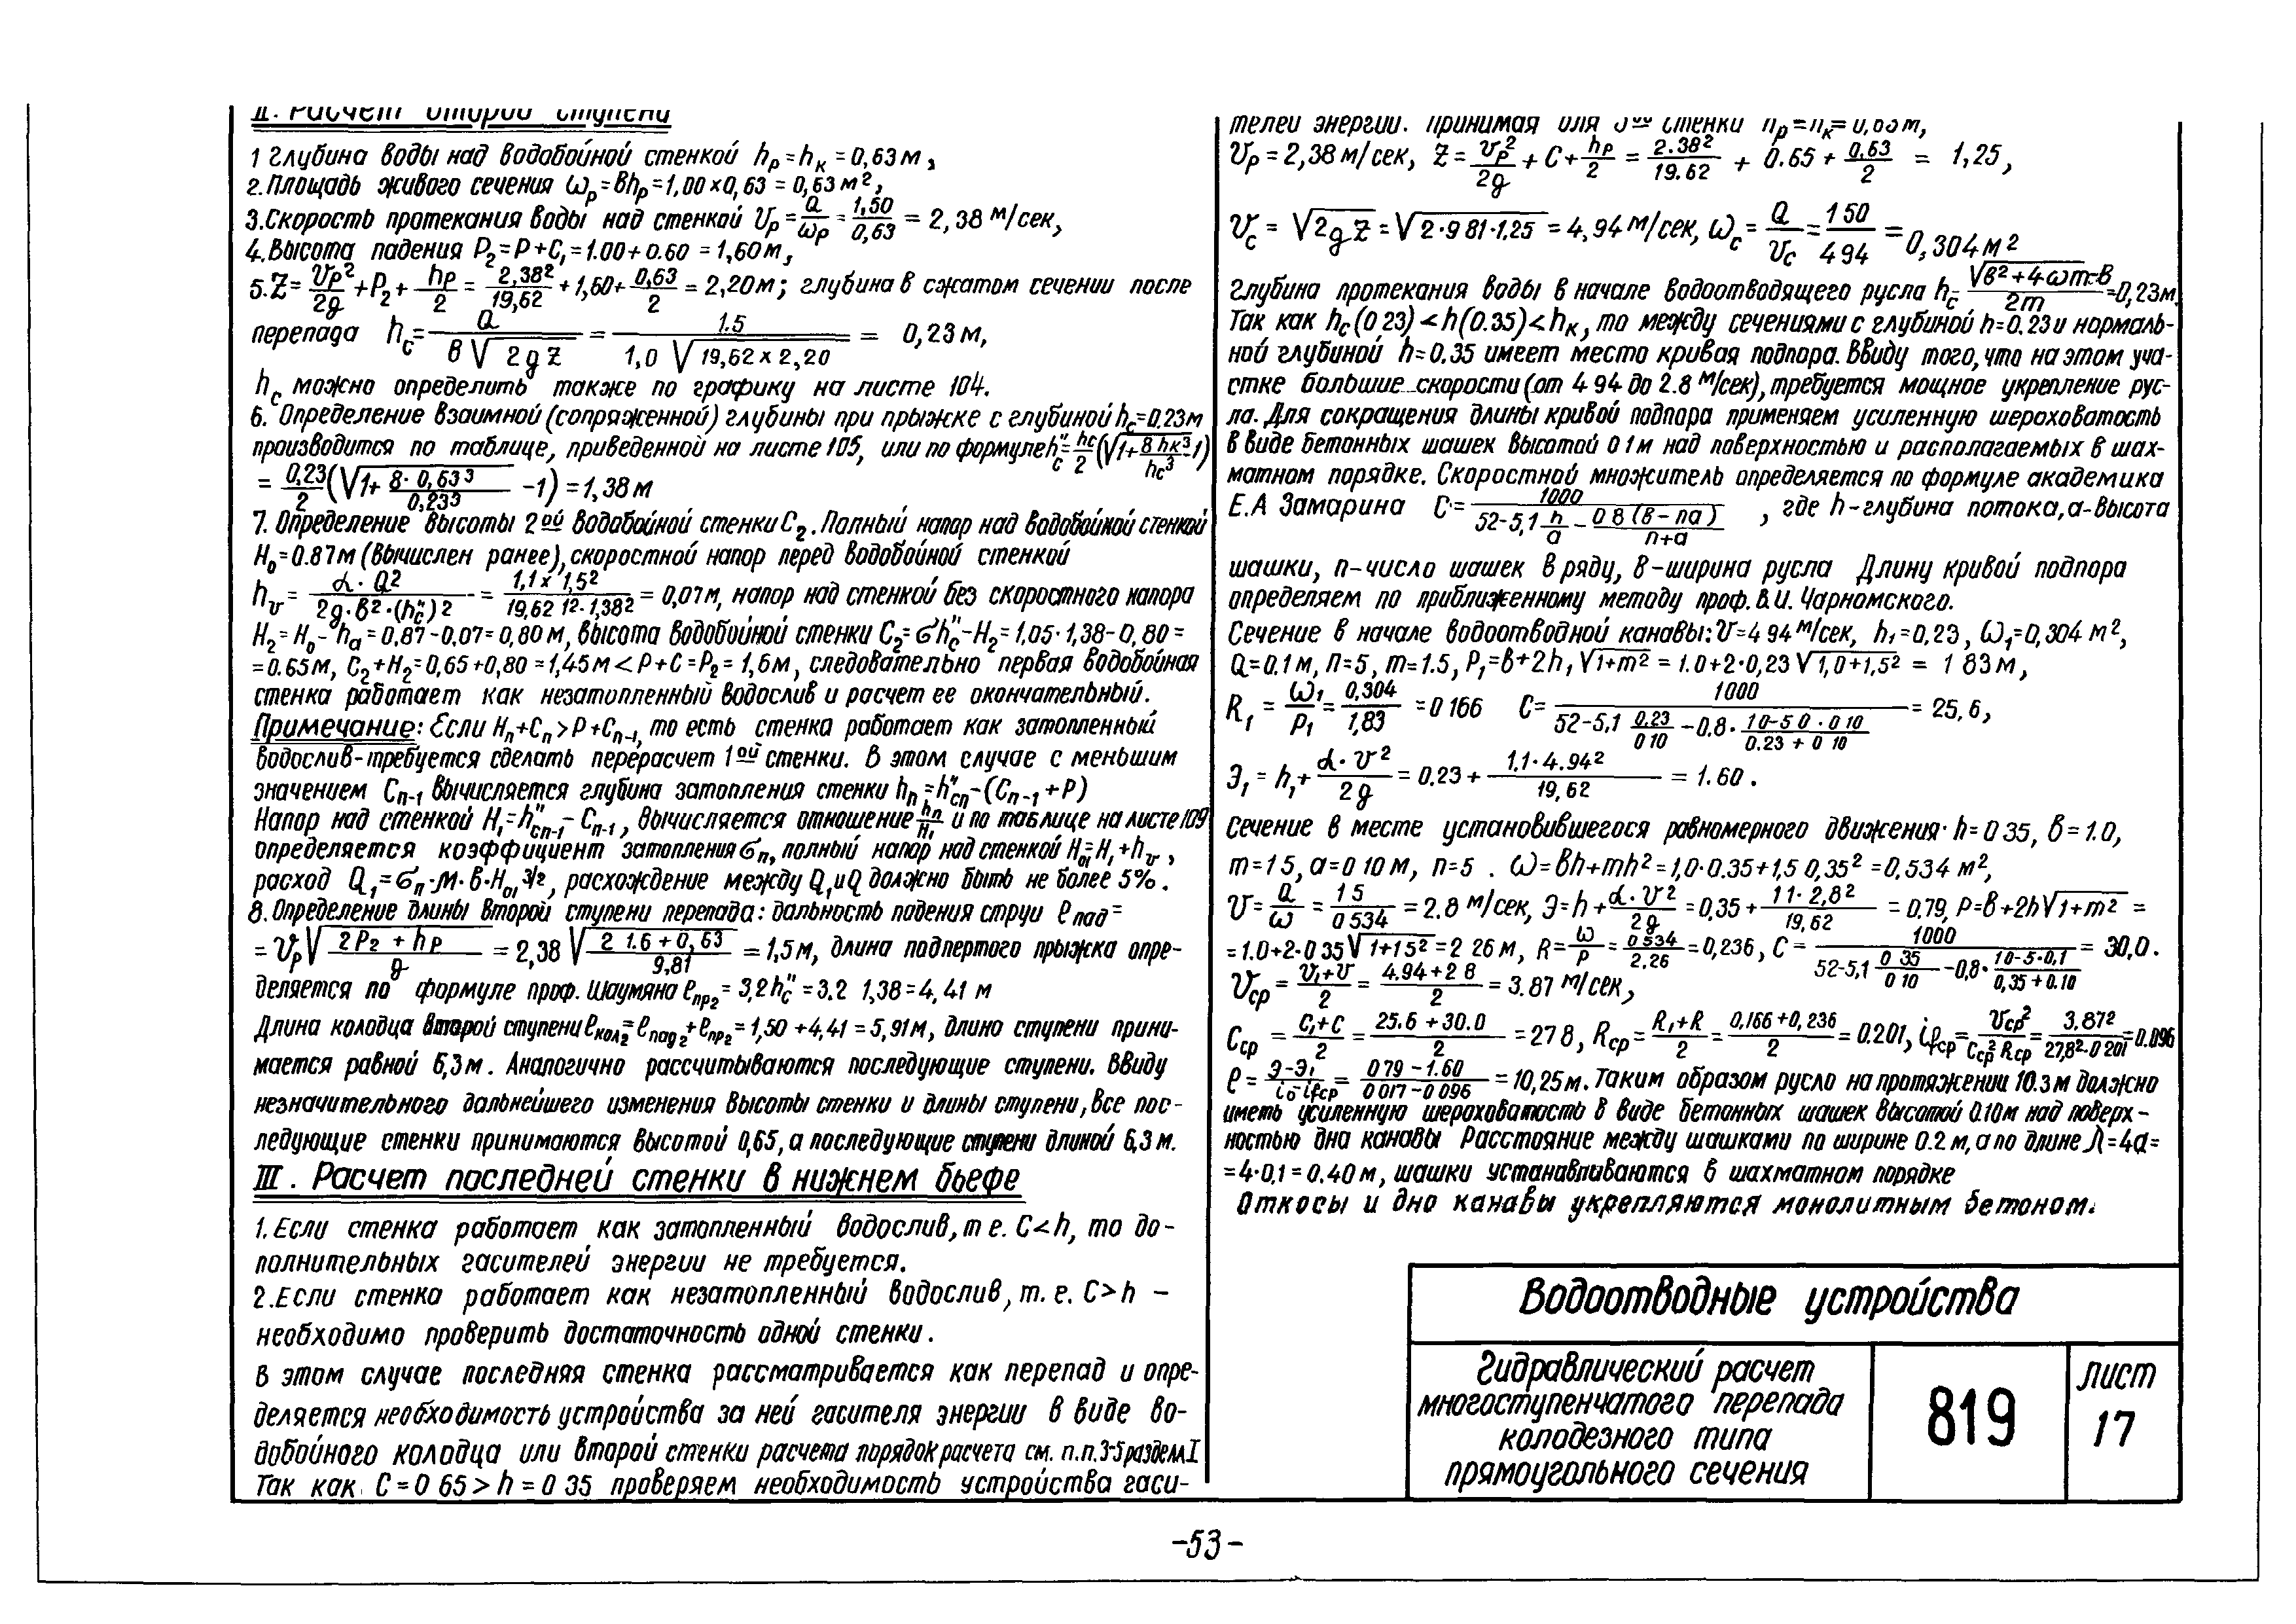 II. Расчет второй ступени
1 Глубина воды над водобойной стенкой hр=hк=0,63м,
2. Площадь живого сечения ωр=вhр=1,00×0,63=0,63м²,
3. Скорость протекания воды над стенкой Vр=Q/ωр=1,50/0,63=2,38 м/сек,
4. Высота падения P₂=P+C₁=1.00+0.60=1,60м,
5. Z=Vр²/2g+P₂+hр/2=2,38²/19,62+1,60+0,63/2=2,20м; глубина в сжатом сечении после
перепада hс=Q/(в√2gZ)=1.5/(1,0√19,62×2,20)=0,23м,
hс можно определить также по графику на листе 104.
6. Определение взаимной (сопряженной) глубины при прыжке с глубиной hс=0.23м
производится по таблице, приведенной на листе 105, или по формуле h"с=hс/2(√1+8hк³/hс³-1)
=0,23/2(√1+8·0,63³/0,23³-1)=1,38м
7. Определение высоты 2ой водобойной стенки C₂. Полный напор над водобойной стенкой
H₀=0.87м (вычислен ранее), скоростной напор перед водобойной стенкой
hv=α·Q²/(2g·в²·(h"с)²)=1,1×1,5²/(19,62 1²·1,38²)=0,07м, напор над стенкой без скоростного напора
H₂=H₀-hа=0,87-0,07=0,80м, высота водобойной стенки C₂=σh"с-H₂=1,05·1,38-0,80=
=0.65м, C₂+H₂=0,65+0,80=1,45м<P+C=P₂=1,6м, следовательно первая водобойная
стенка работает как незатопленный водослив и расчет ее окончательный.
Примечание: Если Hп+Cп>P+Cп-1, то есть стенка работает как затопленный
водослив-требуется сделать перерасчет 1ой стенки. В этом случае с меньшим
значением Cп-1 вычисляется глубина затопления стенки hп=h"сп-(Cп-1+P)
Напор над стенкой H₁=h"сп-1-Cп-1, вычисляется отношение hп/H₁ и по таблице на листе 109
определяется коэффициент затопления σп, полный напор над стенкой H₀₁=H₁+hv,
расход Q₁=σп·M·в·H₀₁^3/2, расхождение между Q₁ и Q должно быть не более 5%.
8. Определение длины второй ступени перепада: дальность падения струи ℓпад=
=Vр√(2P₂+hр)/g=2,38√(2 1.6+0,63)/9,81=1,5м, длина подпертого прыжка опре-
деляется по формуле проф. Шаумяна ℓпр₂=3,2h"с=3.2 1,38=4,41 м
Длина колодца второй ступени ℓкол₂=ℓпад₂+ℓпр₂=1,50+4,41=5,91м, длина ступени прини-
мается равной 6,3м. Аналогично рассчитываются последующие ступени. Ввиду
незначительного дальнейшего изменения высоты стенки и длины ступени, все пос-
ледующие стенки принимаются высотой 0,65, а последующие ступени длиной 6,3м.
III. Расчет последней стенки в нижнем бьефе
1. Если стенка работает как затопленный водослив, т е. C<h, то до-
полнительных гасителей энергии не требуется.
2. Если стенка работает как незатопленный водослив, т. е. C>h –
необходимо проверить достаточность одной стенки.
В этом случае последняя стенка рассматривается как перепад и опре-
деляется необходимость устройства за ней гасителя энергии в виде во-
добойного колодца или второй стенки расчета порядок расчета см. п.п. 3-5 раздел I
Так как C=0 65>h=0 35 проверяем необходимость устройства гаси-
телей энергии. Принимая для стенки hр=hк=0,63м,
Vр=2,38м/сек, Z=Vр²/2g+C+hр/2=2.38²/19.62+0.65+0,63/2=1,25,
Vс=√2gZ=√2·9 81·1.25=4,94м/сек, ωс=Q/Vс=1 50/4 94=0,304м²
глубина протекания воды в начале водоотводящего русла hс=(√в²+4ωm-в)/2m=0,23м.
Так как hс(0 23)<h(0.35)<hк, то между сечениями с глубиной h=0.23 и нормаль-
ной глубиной h=0.35 имеет место кривая подпора. Ввиду того, что на этом уча-
стке большие скорости (от 4 94 до 2.8 м/сек), требуется мощное укрепление рус-
ла. Для сокращения длины кривой подпора применяем усиленную шероховатость
в виде бетонных шашек высотой 0 1м над поверхностью и располагаемых в шах-
матном порядке. Скоростной множитель определяется по формуле академика
Е.А Замарина C=1000/(52-5,1 h/a-0 8(в-па)/(п+а)), где h-глубина потока, а-высота
шашки, п-число шашек в ряду, в-ширина русла Длину кривой подпора
определяем по приближенному методу проф. В.И. Чарномского.
Сечение в начале водоотводной канавы: V=4 94м/сек, h₁=0,23, ω₁=0,304 м²,
Q=0.1м, п=5, m=1.5, P₁=в+2h₁√1+m²=1.0+2·0,23√1,0+1,5²=1 83м,
R₁=ω₁/P₁=0,304/1,83=0 166 C=1000/(52-5,1 0.23/0 10-0,8·(10-5 0·0 10)/(0.23+0 10))=25,6,
Э₁=h₁+α·V²/2g=0.23+1.1·4.94²/19,62=1.60.
Сечение в месте установившегося равномерного движения· h=0 35, в=1.0,
m=1 5, а=0 10 м, п=5. ω=вh+mh²=1,0·0.35+1,5 0,35²=0,534 м²,
V=Q/ω=1 5/0 534=2.8 м/сек, Э=h+α·V²/2g=0,35+1 1·2,8²/19,62=0.79, P=в+2h√1+m²=
=1.0+2·0 35√1+1 5²=2 26м, R=ω/P=0 534/2.26=0,236, C=1000/(52-5,1 0 35/0 10-0,8·(10-5·0,1)/(0,35+0.10))=30,0.
Vср=(V₁+V)/2=(4.94+2 8)/2=3.87 м/сек,
Cср=(C₁+C)/2=(25.6+30.0)/2=27 8, Rср=(R₁+R)/2=(0,166+0,236)/2=0.201, ifср=Vср²/(Cср²Rср)=3.87²/(27,8²·0 201)=0.096
ℓ=(Э-Э₁)/(i₀-ifср)=(0 79-1.60)/(0 017-0 096)=10,25м. Таким образом русло на протяжении 10.3м должно
иметь усиленную шероховатость в виде бетонных шашек высотой 0.10м над поверх-
ностью дна канавы Расстояние между шашками по ширине 0.2 м, а по длине Л=4а=
=4·0,1=0.40м, шашки устанавливаются в шахматном порядке
Откосы и дно канавы укрепляются монолитным бетоном.
Водоотводные устройства
Гидравлический расчет
многоступенчатого перепада
колодезного типа
прямоугольного сечения
819
лист
17
-53-